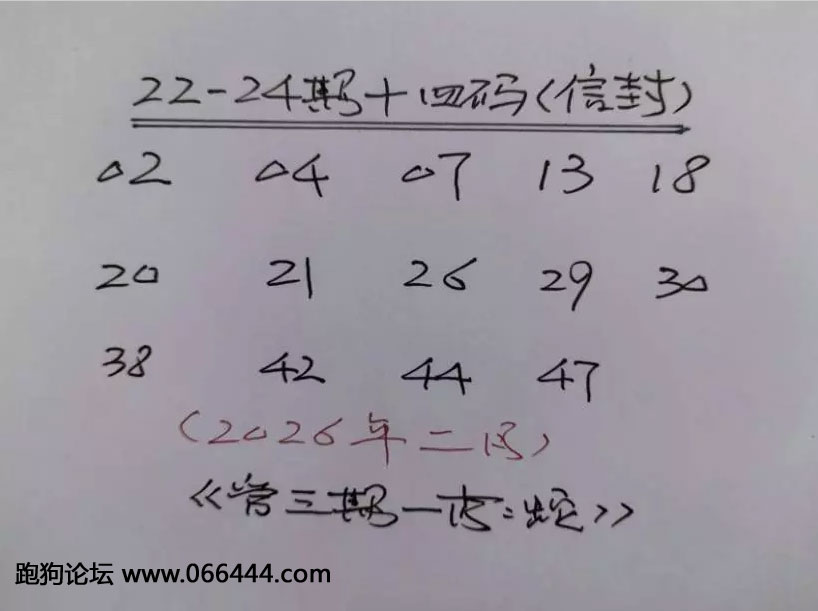 22-24期十四码(信封)
02 04 07 13 18
20 21 26 29 30
38 42 44 47
(2026年二月)
《管三期一肖:蛇》
跑狗论坛 www.066444.com